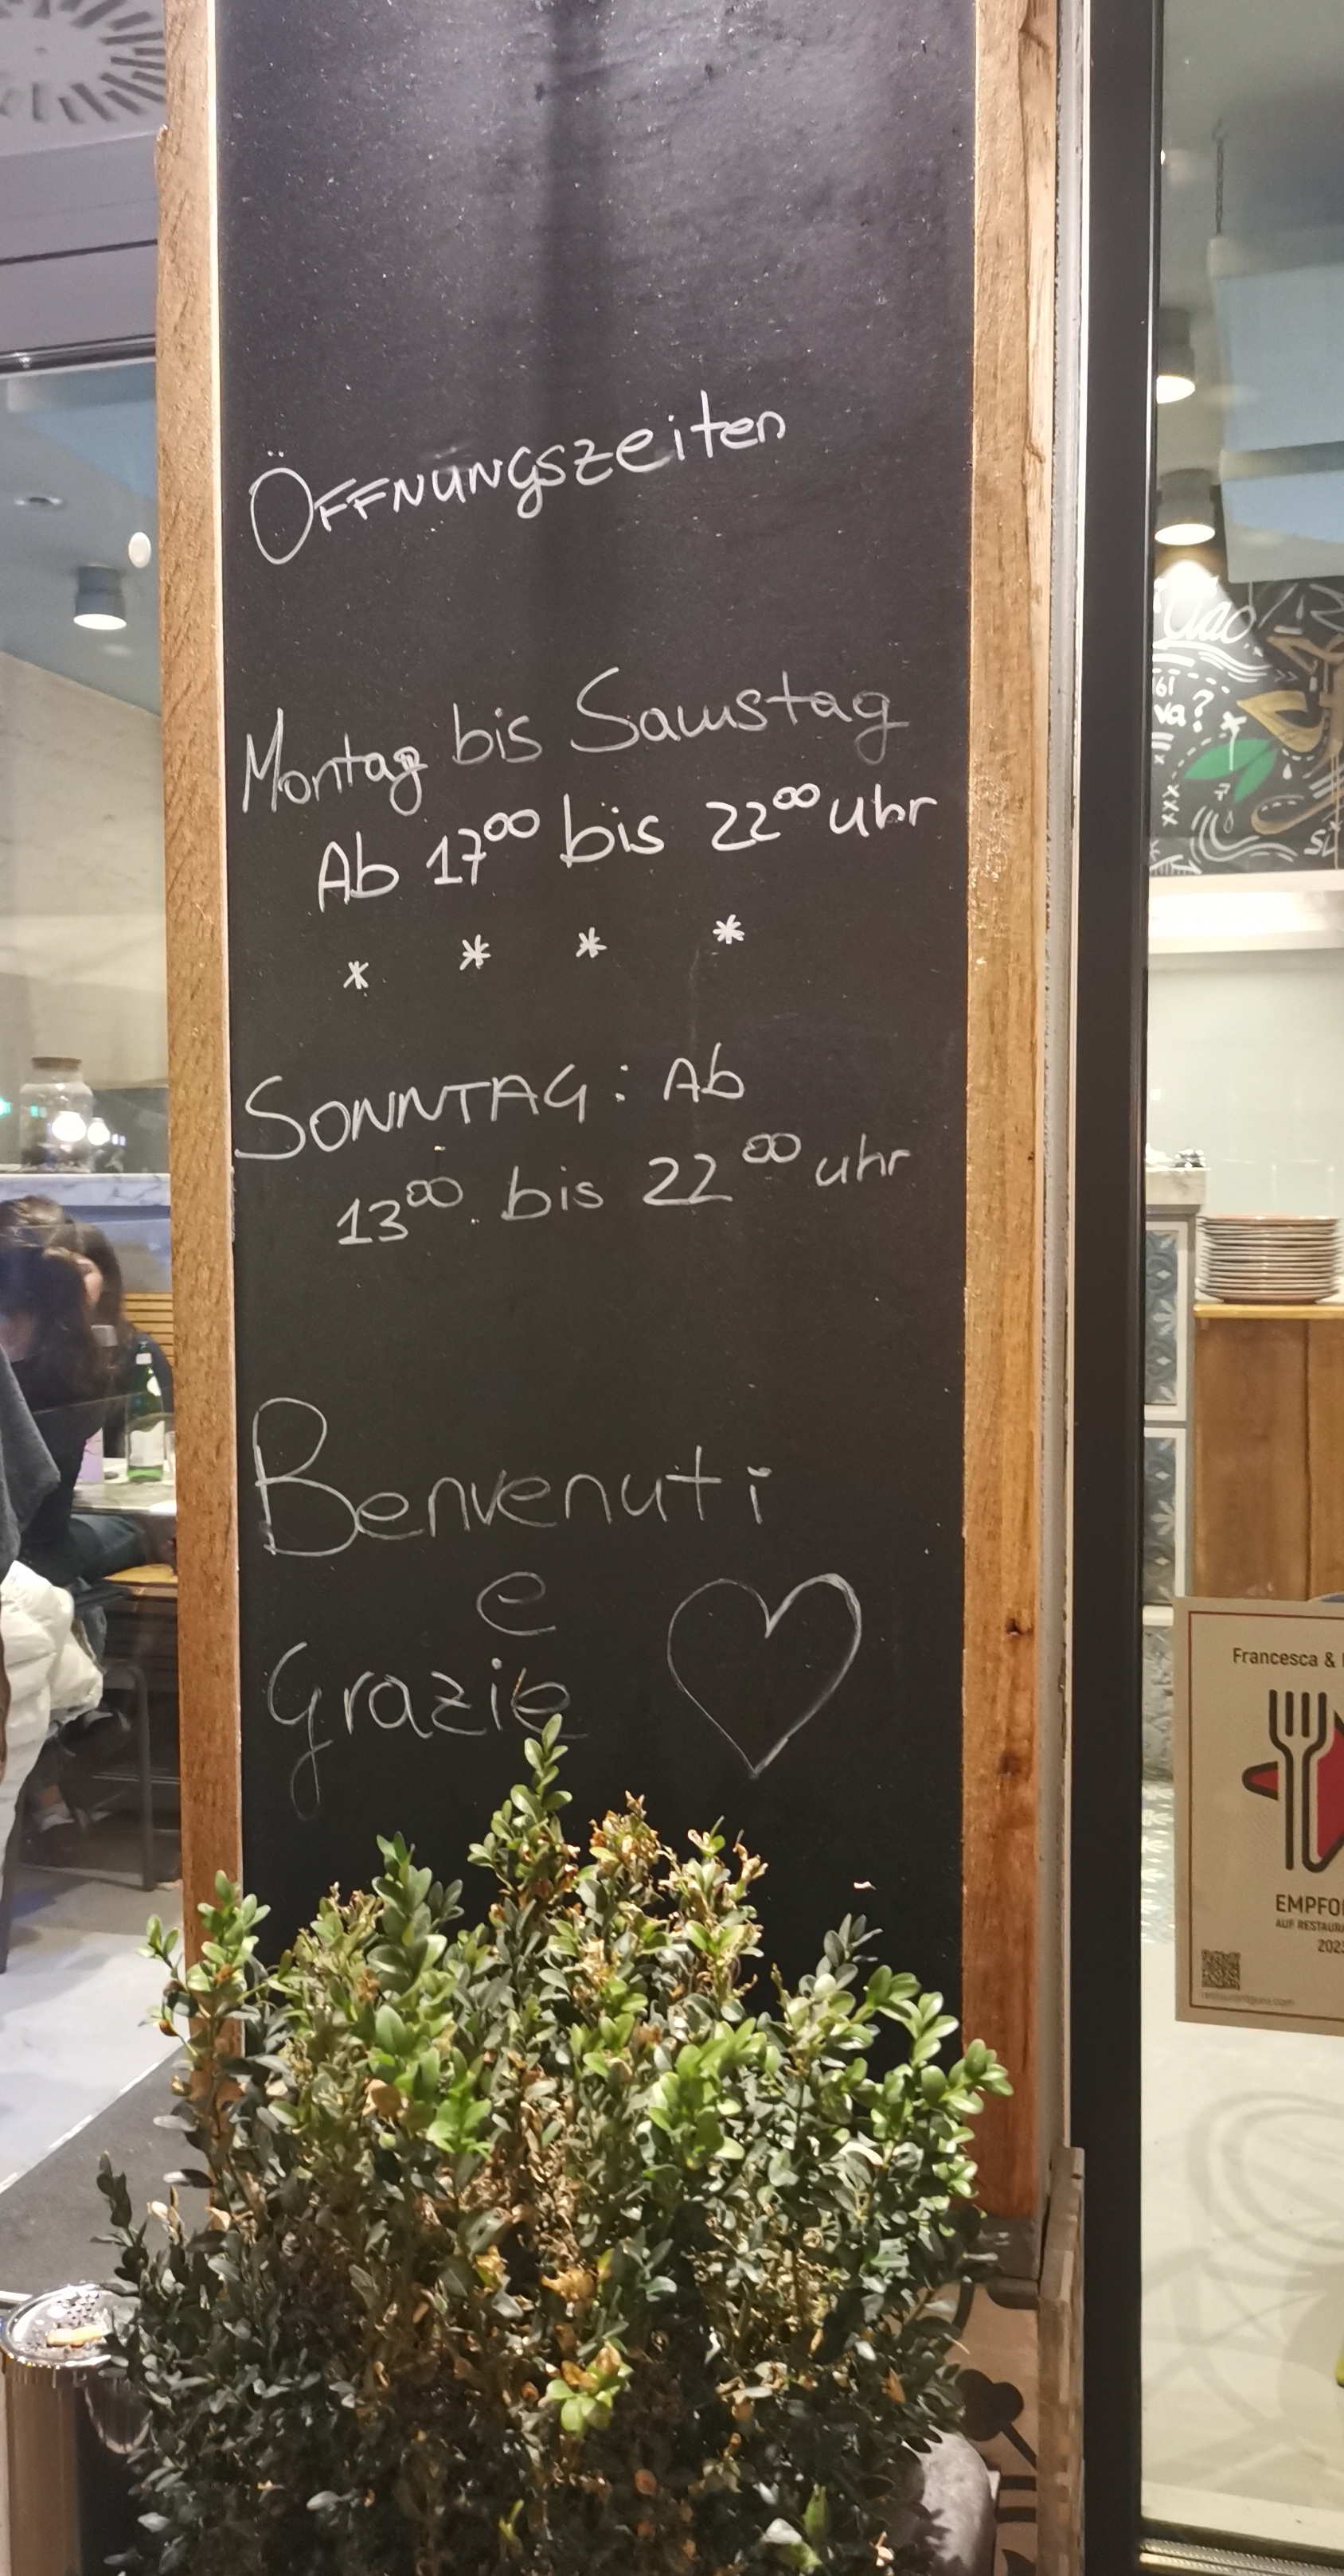 Öffnungszeiten
Montag bis Samstag
Ab 17⁰⁰ bis 22⁰⁰ uhr
* * * *
SONNTAG: Ab
13⁰⁰ bis 22⁰⁰ uhr
Benvenuti
e
Grazie
Ciao
va?
Francesca &
EMPFO
AUF RESTAUR
202